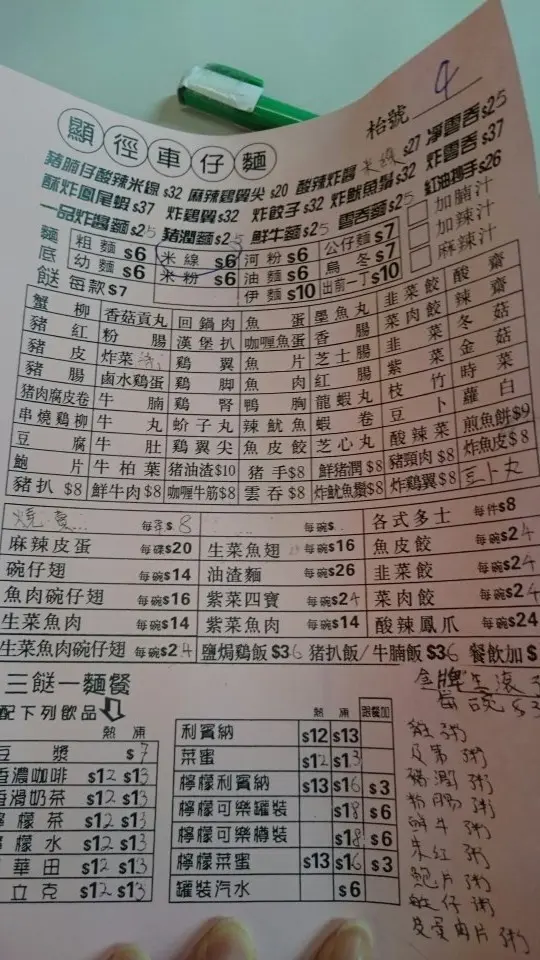 枱號 4
顯徑車仔麵
豬腩仔酸辣米線$32 麻辣雞翼尖$20 酸辣炸醬米線$27 淨雲吞$25
酥炸鳳尾蝦$37 炸雞翼$32 炸餃子$32 炸魷魚鬚$32 炸雲吞$37
一品炸醬麵$25 豬潤麵$25 鮮牛麵$25 雲吞麵$25 紅油抄手$26
麵底 粗麵$6 米線$6 河粉$6 公仔麵$7 加腩汁
幼麵$6 米粉$6 油麵$6 烏冬$7 加辣汁
伊麵$10 出前一丁$10 麻辣汁
餸 每款$7
蟹柳 香菇貢丸 回鍋肉 魚蛋 墨魚丸 韭菜餃 酸齋
豬紅 粉腸 漢堡扒 咖喱魚蛋 香腸 菜肉餃 辣齋
豬皮 炸菜 鷄翼 魚片 芝士腸 韭菜 冬菇
豬腸 鹵水鷄蛋 鷄脚 魚肉 紅腸 紫菜 金菇
豬肉腐皮卷 牛腩 鷄腎 鴨胸 龍蝦丸 枝竹 時菜
串燒鷄柳 牛丸 蚧子丸 辣魷魚 蝦卷 豆卜 蘿白
豆腐 牛肚 鷄翼尖 魚皮餃 芝心丸 酸辣菜 煎魚餅$9
鮑片 牛柏葉 豬油渣$10 豬手$8 鮮豬潤$8 豬頸肉$8 炸魚皮$8
豬扒$8 鮮牛肉$8 咖喱牛筋$8 雲吞$8 炸魷魚鬚$8 炸鷄翼$8 三卜丸
每$8 每碗$ 各式多士 每件$8
麻辣皮蛋 每碟$20 生菜魚翅 每碗$16 魚皮餃 每碗$24
碗仔翅 每碗$14 油渣麵 每碗$26 韭菜餃 每碗$24
魚肉碗仔翅 每碗$16 紫菜四寶 每碗$24 菜肉餃 每碗$24
生菜魚肉 每碗$14 紫菜魚肉 每碗$14 酸辣鳳爪 每碗$24
生菜魚肉碗仔翅 每碗$24 鹽焗鷄飯$36 豬扒飯/牛腩飯$36 餐飲加$
三餸一麵餐
配下列飲品
熱 凍
豆漿 $7
香濃咖啡 $12 $13
香滑奶茶 $12 $13
檸檬茶 $12 $13
檸檬水 $12 $13
華田 $12 $13
立克 $12 $13
熱 凍 跟餐加
利賓納 $12 $13
菜蜜 $12 $13
檸檬利賓納 $13 $16 $3
檸檬可樂罐裝 $18 $6
檸檬可樂樽裝 $18 $6
檸檬菜蜜 $13 $16 $3
罐裝汽水 $6
金牌生滾
粥
豬潤粥
粉腸粥
鮮牛粥
朱紅粥
鮑片粥
粥
皮蛋肉片粥